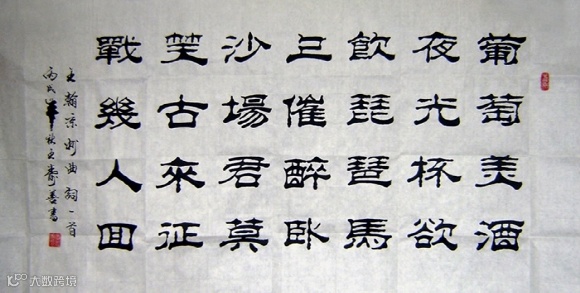 葡萄美酒
夜光杯欲
飲琵琶馬
上催醉卧
沙場君莫
笑古來征
戰幾人回
王翰凉州曲詞一首
丙戌年秋王壽善書
大数跨境